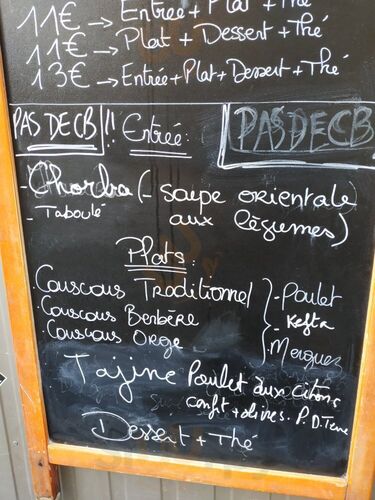 11€ → Entrée + Plat + Thé
11€ → Plat + Dessert + Thé
13€ → Entrée + Plat + Dessert + Thé
PAS DE CB !! Entrée : PAS DE CB
- Chorba (- soupe orientale
- Taboulé aux légumes)
Plats :
. Couscous Traditionnel } - Poulet
. Couscous Berbère - Kefta
. Couscous Orge - Merguez
Tajine Poulet aux Citrons
confit + olives. P. D. Terre
Dessert + Thé